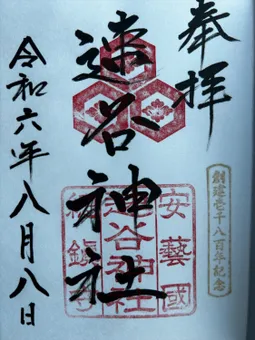 奉拝
速谷神社
令和六年八月八日
安藝國
速谷神社
総鎮守
創建壱千八百年記念